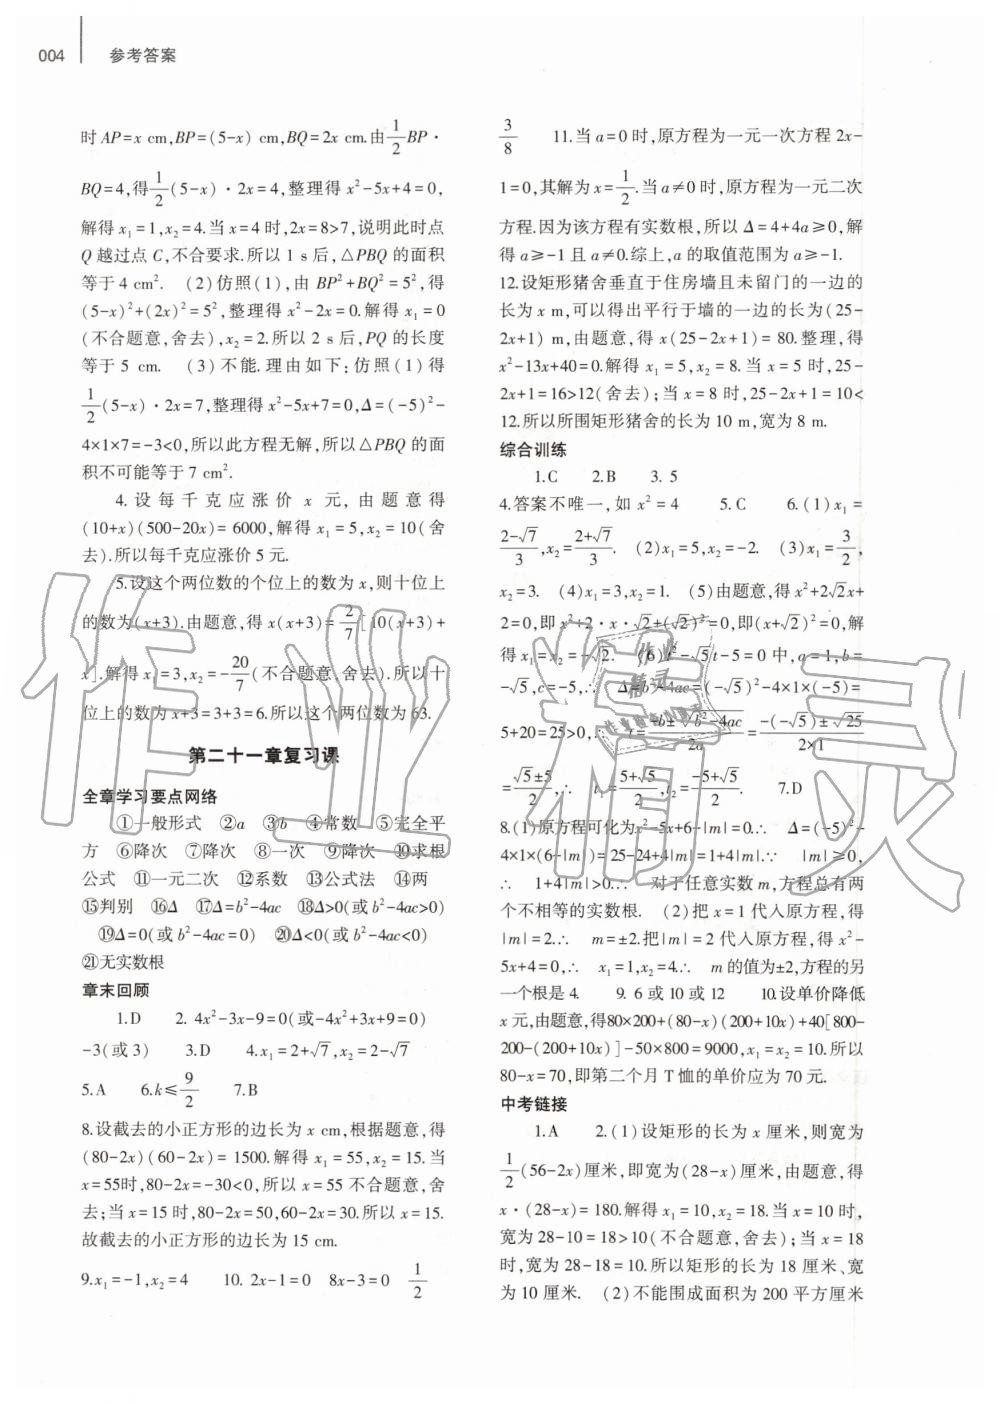 004 参考答案
时 AP=x cm,BP=(5-x) cm,BQ=2x cm.由1/2BP·
BQ=4,得1/2(5-x)·2x=4,整理得 x²-5x+4=0,
解得 x₁=1,x₂=4.当 x=4 时,2x=8>7,说明此时点
Q 越过点 C,不合要求.所以 1 s 后,△PBQ 的面积
等于 4 cm². (2)仿照(1),由 BP²+BQ²=5²,得
(5-x)²+(2x)²=5²,整理得 x²-2x=0.解得 x₁=0
(不合题意,舍去),x₂=2.所以 2 s 后,PQ 的长度
等于 5 cm. (3)不能.理由如下:仿照(1)得
1/2(5-x)·2x=7,整理得 x²-5x+7=0,Δ=(-5)²-
4×1×7=-3<0,所以此方程无解,所以△PBQ 的面
积不可能等于 7 cm².
4.设每千克应涨价 x 元,由题意得
(10+x)(500-20x)=6000,解得 x₁=5,x₂=10(舍
去).所以每千克应涨价 5 元.
5.设这个两位数的个位上的数为 x,则十位上
的数为(x+3).由题意,得 x(x+3)=2/7[10(x+3)+
x].解得 x₁=3,x₂=-20/7(不合题意,舍去).所以十
位上的数为 x+3=3+3=6.所以这个两位数为 63.
第二十一章复习课
全章学习要点网络
①一般形式 ②a ③b ④常数 ⑤完全平
方 ⑥降次 ⑦降次 ⑧一次 ⑨降次 ⑩求根
公式 ⑪一元二次 ⑫系数 ⑬公式法 ⑭两
⑮判别 ⑯Δ ⑰Δ=b²-4ac ⑱Δ>0(或 b²-4ac>0)
⑲Δ=0(或 b²-4ac=0) ⑳Δ<0(或 b²-4ac<0)
㉑无实数根
章末回顾
1.D 2. 4x²-3x-9=0(或-4x²+3x+9=0)
-3(或 3) 3.D 4.x₁=2+√7,x₂=2-√7
5.A 6.k≤9/2 7.B
8.设截去的小正方形的边长为 x cm,根据题意,得
(80-2x)(60-2x)=1500.解得 x₁=55,x₂=15.当
x=55时,80-2x=-30<0,所以 x=55 不合题意,舍
去;当 x=15 时,80-2x=50,60-2x=30.所以 x=15.
故截去的小正方形的边长为 15 cm.
9.x₁=-1,x₂=4 10. 2x-1=0 8x-3=0 1/2
3/8 11.当 a=0 时,原方程为一元一次方程 2x-
1=0,其解为 x=1/2.当 a≠0 时,原方程为一元二次
方程.因为该方程有实数根,所以 Δ=4+4a≥0,解
得 a≥-1 且 a≠0.综上,a 的取值范围为 a≥-1.
12.设矩形猪舍垂直于住房墙且未留门的一边的
长为 x m,可以得出平行于墙的一边的长为(25-
2x+1) m,由题意,得 x(25-2x+1)=80.整理,得
x²-13x+40=0.解得 x₁=5,x₂=8.当 x=5 时,25-
2x+1=16>12(舍去);当 x=8 时,25-2x+1=10<
12.所以所围矩形猪舍的长为 10 m,宽为 8 m.
综合训练
1.C 2.B 3. 5
4.答案不唯一,如 x²=4 5.C 6.(1)x₁=
2-√7/3,x₂=2+√7/3. (2)x₁=5,x₂=-2. (3)x₁=3/2,
x₂=3. (4)x₁=3,x₂=1. (5)由题意,得 x²+2√2x+
2=0,即 x²+2·x·√2+(√2)²=0,即(x+√2)²=0,解
得 x₁=x₂=-√2. (6)t²-√5t-5=0 中,a=1,b=
-√5,c=-5,∴ Δ=b²-4ac=(-√5)²-4×1×(-5)=
5+20=25>0,∴ t=-b±√b²-4ac/2a=-(-√5)±√25/2×1
=√5±5/2,∴ t₁=5+√5/2,t₂=-5+√5/2. 7.D
8.(1)原方程可化为x²-5x+6-|m|=0.∴ Δ=(-5)²-
4×1×(6-|m|)=25-24+4|m|=1+4|m|.∵ |m|≥0,
∴ 1+4|m|>0.∴ 对于任意实数 m,方程总有两
个不相等的实数根. (2)把 x=1 代入原方程,得
|m|=2.∴ m=±2.把|m|=2 代入原方程,得 x²-
5x+4=0,∴ x₁=1,x₂=4.∴ m 的值为±2,方程的另
一个根是 4. 9. 6 或 10 或 12 10.设单价降低
x 元,由题意,得80×200+(80-x)(200+10x)+40[800-
200-(200+10x)]-50×800=9000,x₁=x₂=10.所以
80-x=70,即第二个月 T 恤的单价应为 70 元.
中考链接
1.A 2.(1)设矩形的长为 x 厘米,则宽为
1/2(56-2x)厘米,即宽为(28-x)厘米,由题意,得
x·(28-x)=180.解得 x₁=10,x₂=18.当 x=10 时,
宽为 28-10=18>10(不合题意,舍去);当 x=18
时,宽为 28-18=10.所以矩形的长为 18 厘米、宽
为 10 厘米. (2)不能围成面积为 200 平方厘米
作业精灵